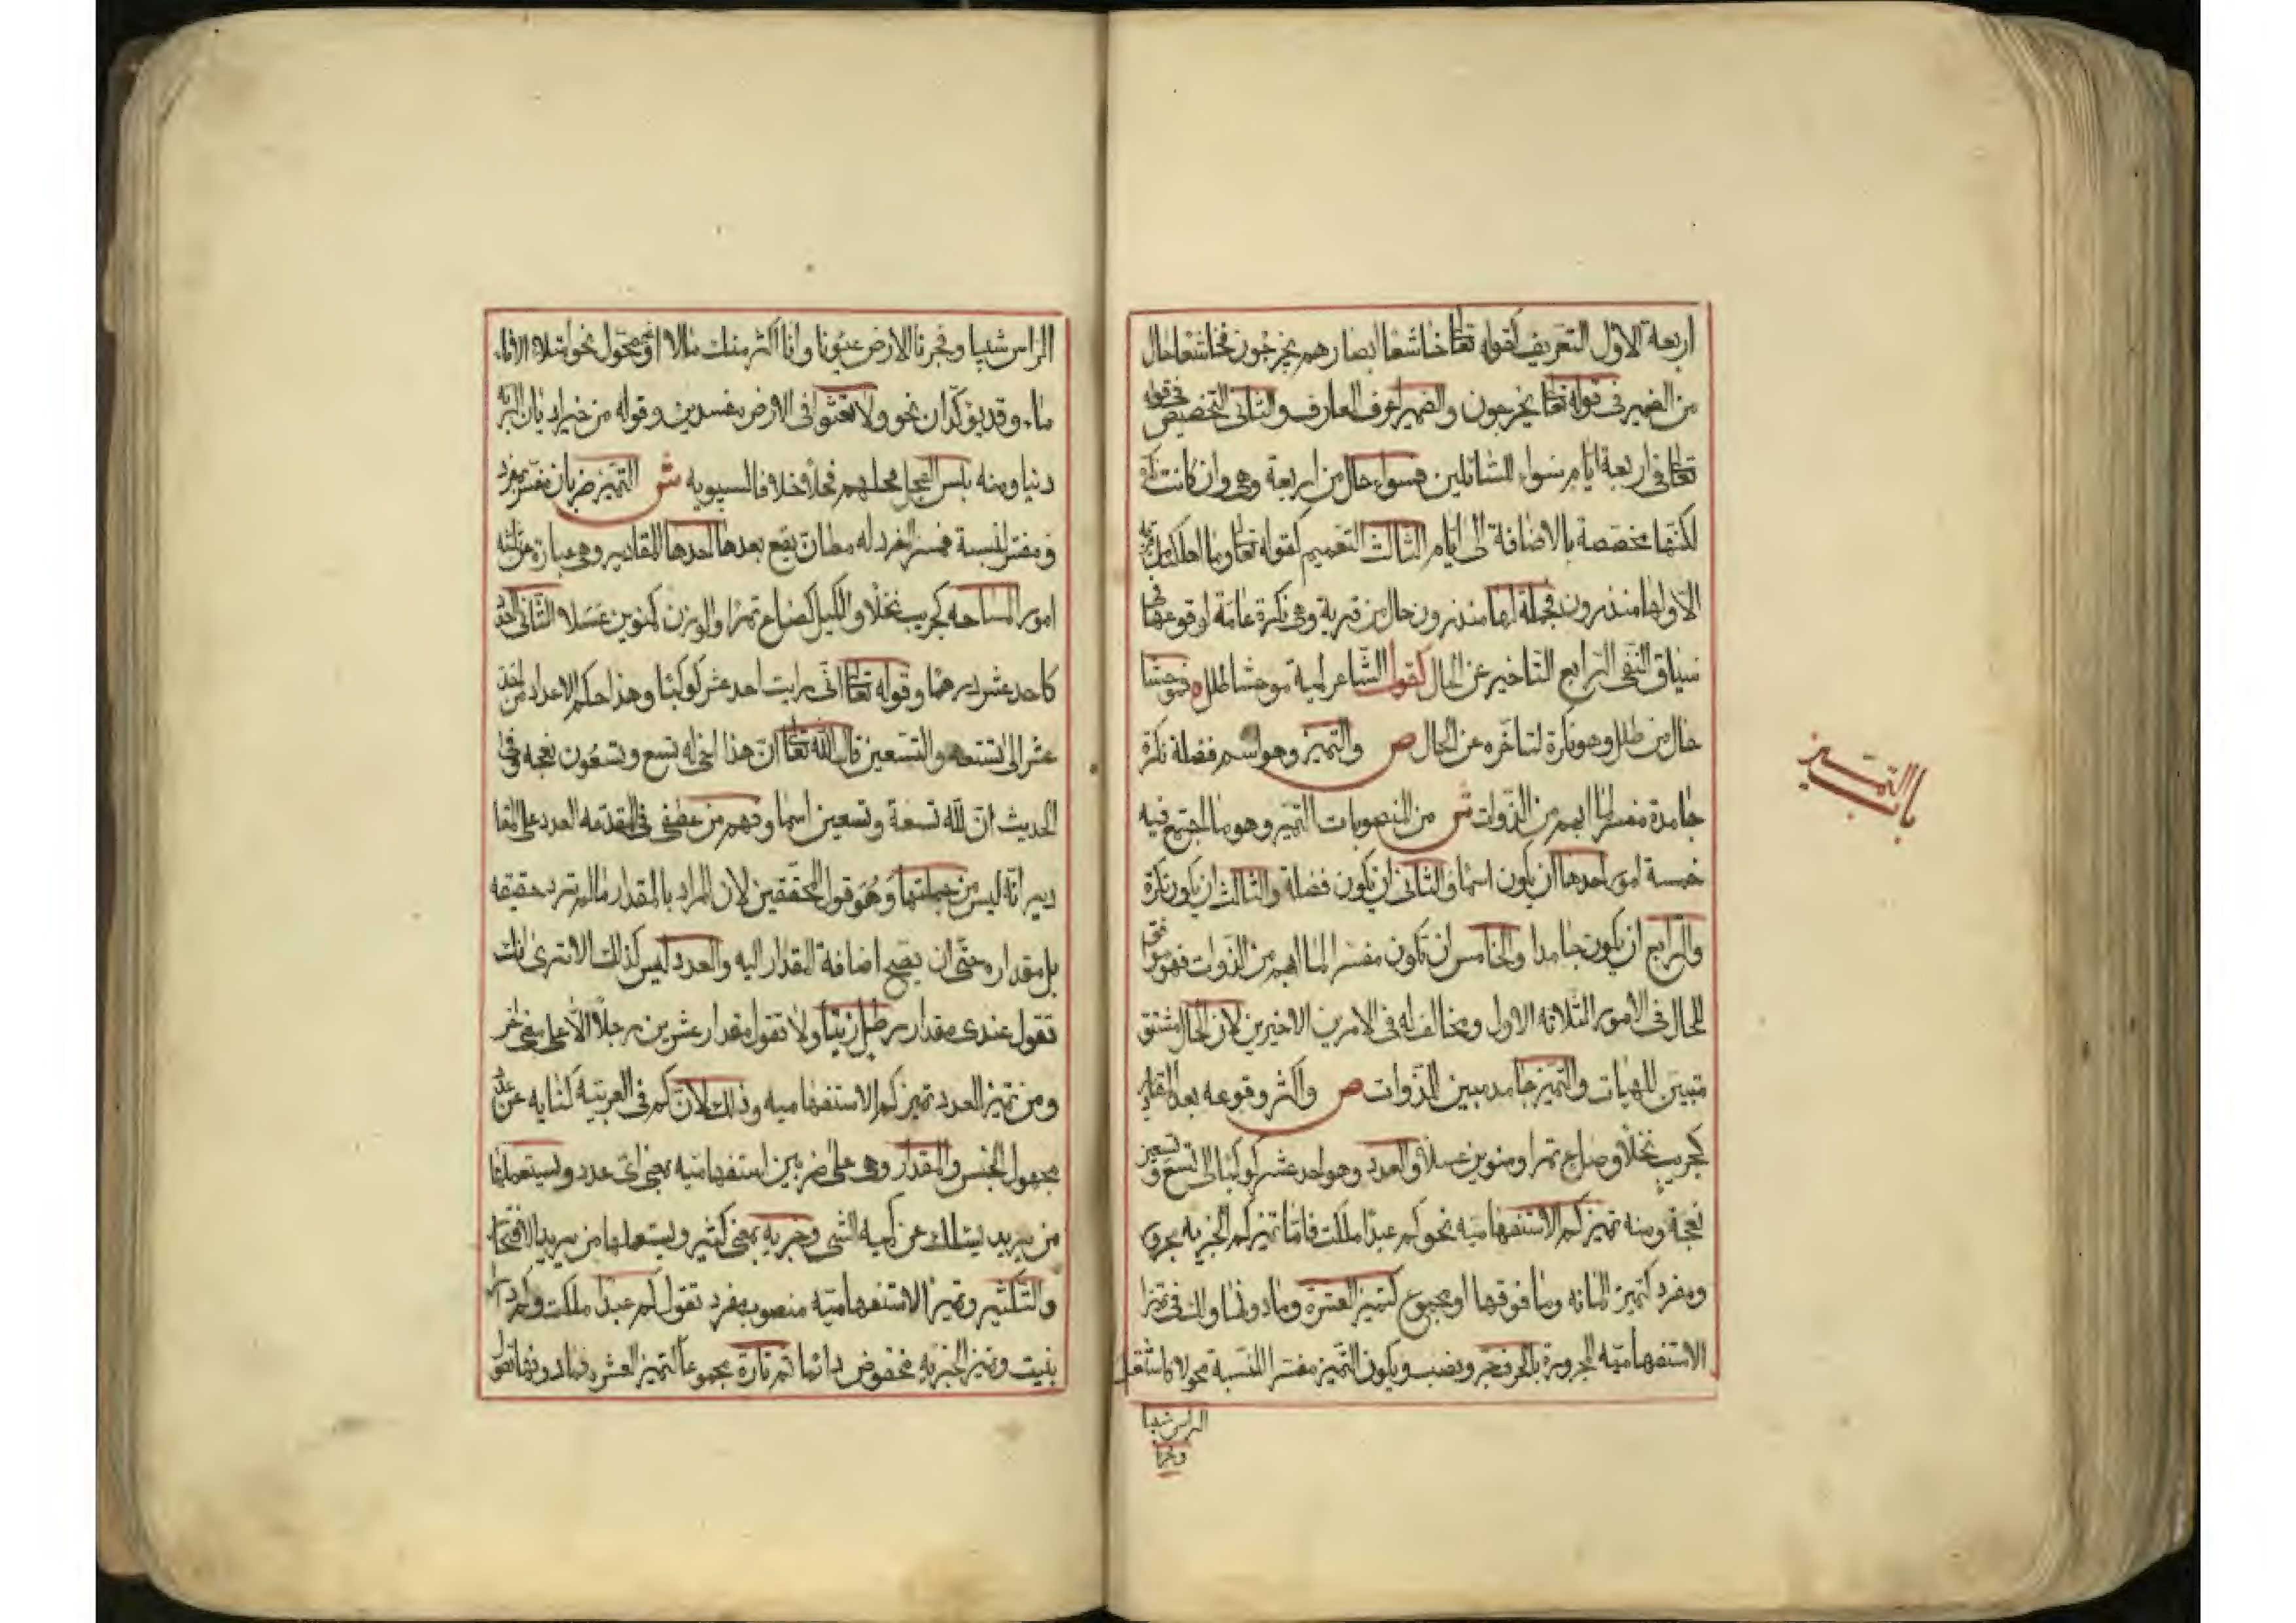 اربعة الاول التعريف كقوله تعالى خاشعا ابصارهم يخرجون فخاشعا حال
من الضمير في قوله تعالى يخرجون والضمير اعرف المعارف والثاني التخصيص في قوله
تعالى في اربعة ايام سواء للسائلين فسواء حال من اربعة وهي وان كانت نكرة
لكنها مخصصة بالاضافة الى ايام الثالث التعميم كقوله تعالى وما اهلكنا من قرية
الا ولها منذرون فجملة لها منذرون حال من قرية وهي نكرة عامة لوقوعها في
سياق النفي الرابع التاخير عن الحال كقول الشاعر لمية موحشا طلل فموحشا
حال من طلل وهو نكرة لتاخره عن الحال ص والتميز وهو اسم فضلة نكرة
جامدة مفسر لما ابهم من الذوات ش من المنصوبات التميز وهو ما اجتمع فيه
خمسة امور احدها ان يكون اسما والثاني ان يكون فضلة والثالث ان يكون نكرة
والرابع ان يكون جامدا والخامس ان يكون مفسرا لما ابهم من الذوات فهو موافق
للحال في الامور الثلاثه الاول ومخالف له في الامرين الاخيرين لان الحال مشتق
مبين للهيات والتميز جامد مبين للذوات ص واكثر وقوعه بعد المقادير
كجريب نخلا وصاع تمرا ومنوين عسلا والعدد وهو احد عشر كوكبا الى تسع وتسعين
نعجة ومنه تميز كم الاستفهاميه نحو كم عبدا ملكت فاما تميز كم الخبريه مجرور
ومفرد كتميز المائه وما فوقها او مجموع كتميز العشره وما دونها ولك في تميز
الاستفهاميه المجرورة بالحرف جر ونصب ويكون التميز مفسرا للنسبة محولا كاشتعل
الراس شيبا
وفجرنا
باب التمييز
الراس شيبا وفجرنا الارض عيونا وانا اكثر منك مالا او غير محول نحو امتلاء الاناء
ماء وقد يؤكدان نحو ولا تعثوا في الارض مفسدين وقوله من خير اديان البريه
دينا ومنه بئس الفحل فحلهم فحلا خلافا لسيبويه ش التميز ضربان مفسر مفرد
ومفسر لنسبة فمفسر المفرد له مظان يقع بعدها احدها المقادير وهي عبارة عن ثلثه
امور المساحه كجريب نخلا والكيل كصاع تمرا والوزن كمنوين عسلا الثاني العدد
كاحد عشر درهما وقوله تعالى اني رايت احد عشر كوكبا وهذا حكم الاعداد من احد
عشر الى تسعه والتسعين قال الله تعالى ان هذا اخي له تسع وتسعون نعجه وفي
الحديث ان لله تسعة وتسعين اسما وفهم من عطفي في المقدمه العدد على المقا
دير انه ليس من جملتها وهو قول المحققين لان المراد بالمقدار ما لم ترد حقيقه
بل مقداره حتى ان يصح اضافة المقدار اليه والعدد ليس كذلك الا ترى انك
تقول عندي مقدار رطل زيتا ولا تقول مقدار عشرين رجلا الا على معنى اخر
ومن تميز العدد تميز كم الاستفهاميه وذلك لان كم في العربيه كنايه عن عدد
مجهول الجنس والمقدار وهي على ضربين استفهاميه بمعنى اي عدد ويستعملها
من يريد يسئلك عن كميه الشي وخبريه بمعنى كثير ويستعملها من يريد الافتخار
والتكثير وتميز الاستفهاميه منصوب مفرد تقول كم عبدا ملكت وكم دارا
بنيت وتميز الخبريه مخفوض دائما ثم تارة مجموعا كتميز العشره فما دونها تقول